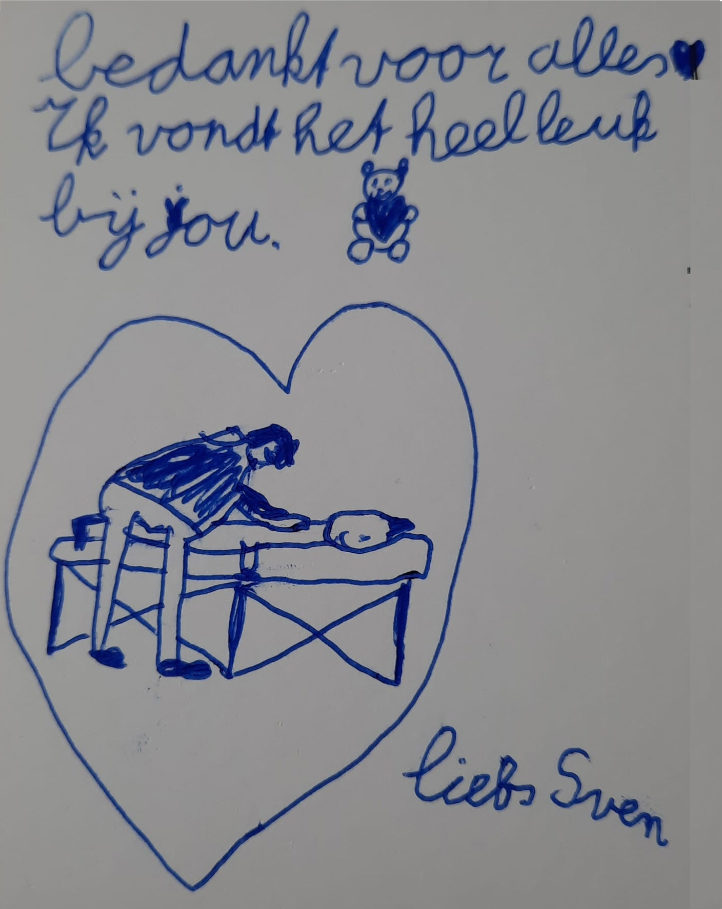 bedankt voor alles
Ik vondt het heel leuk
bij jou.
liefs Sven